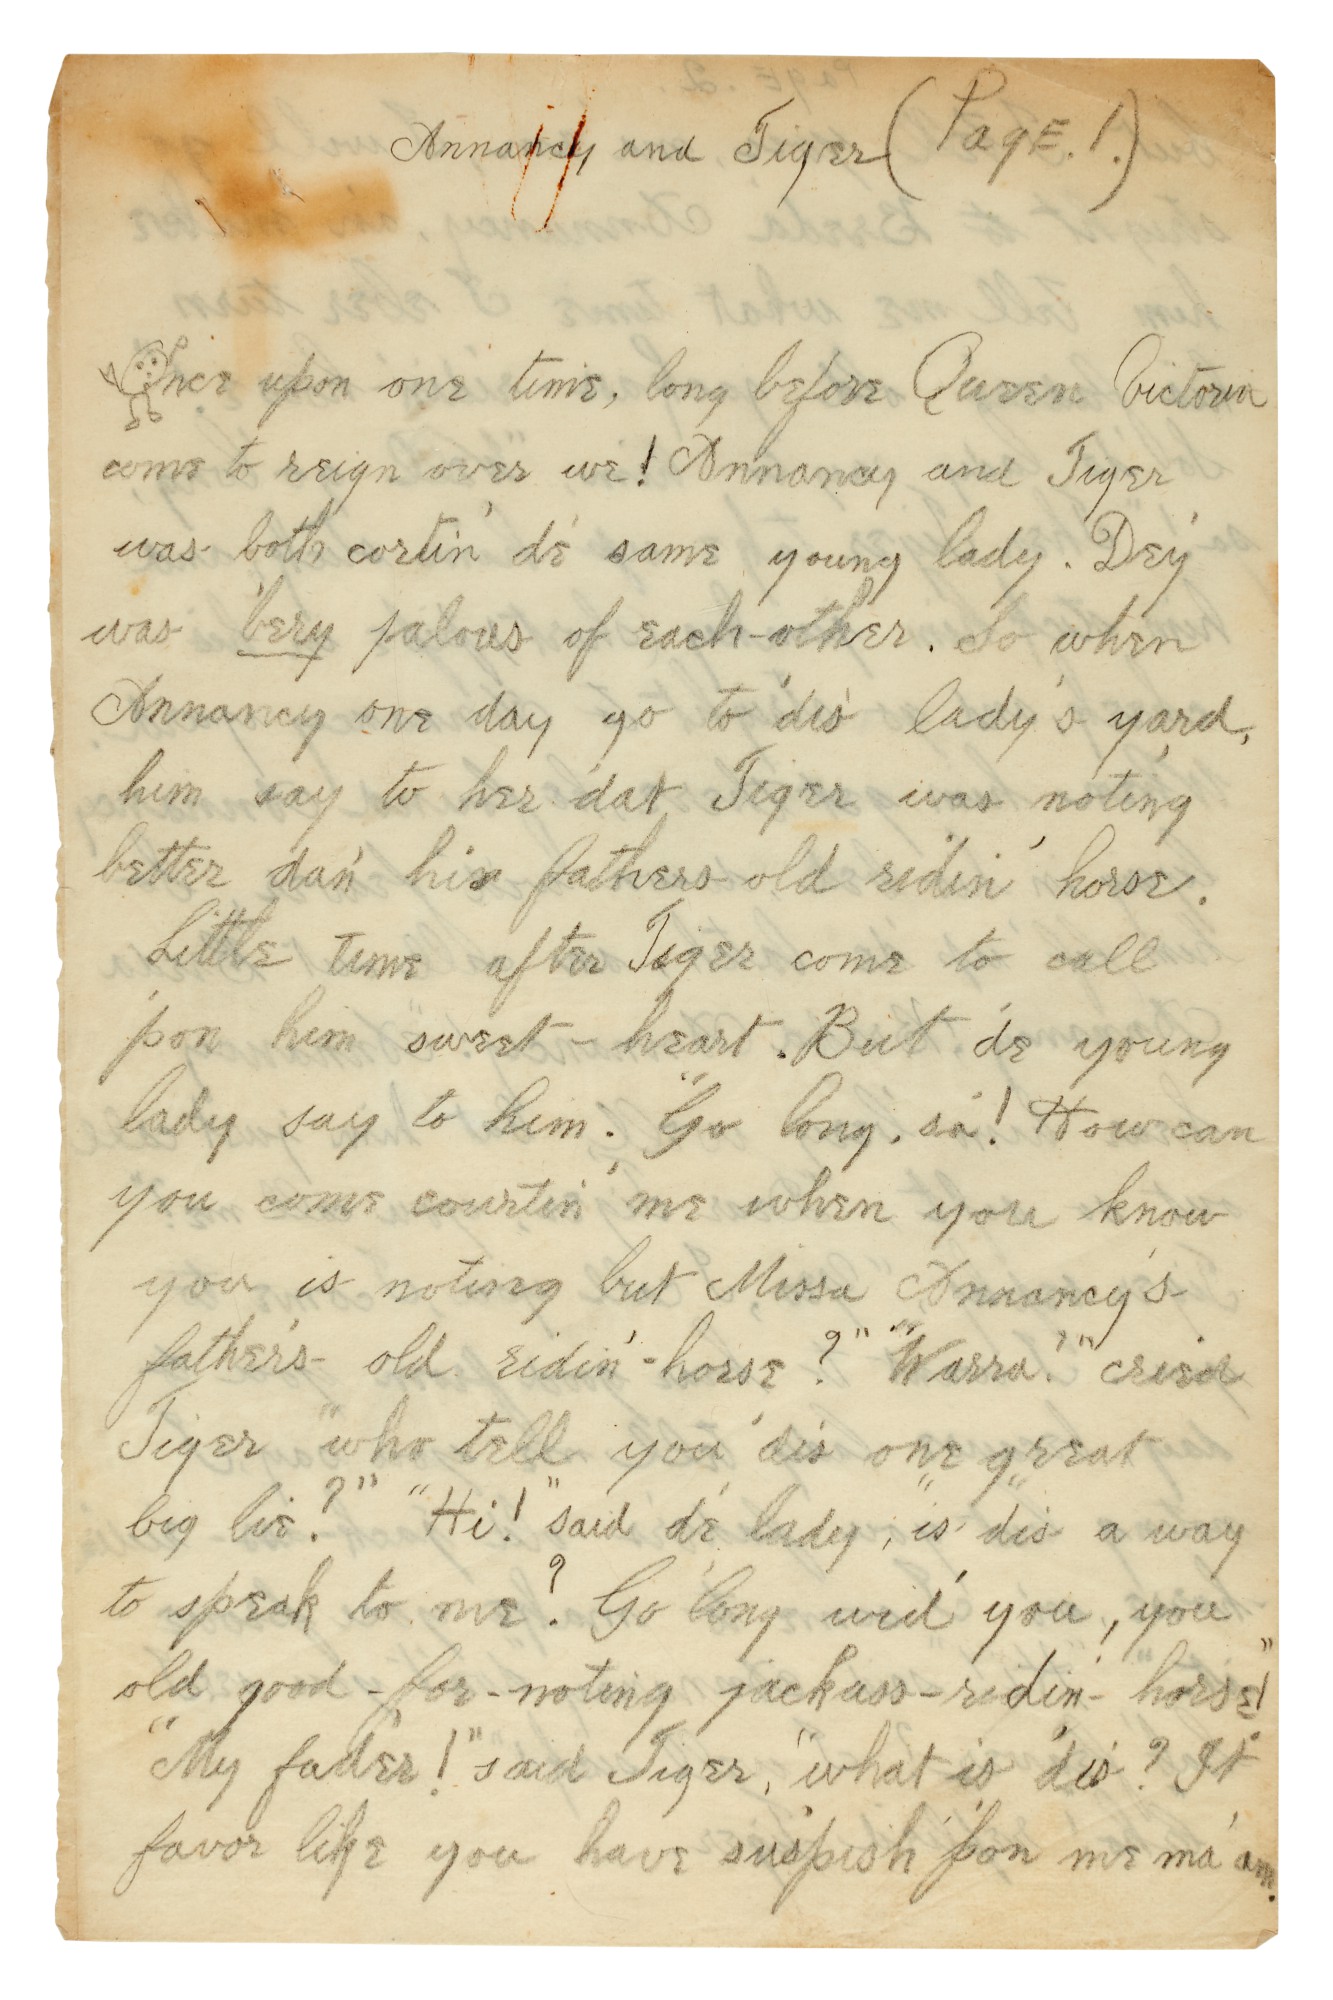 Annancy and Tiger (Page. 1.)
Once upon one time, long before Queen Victoria
come to reign over we! Annancy and Tiger
was both cortin' de' same young lady. Dey'
was 'bery jalous of each-other. So when
Annancy one day go to 'dis' lady's yard,
him say to her 'dat Tiger was not'ing
better dan' his fathers old ridin' horse.
Little time after Tiger come to call
'pon him sweet-heart. But 'de young
lady say to him. "Go long, sa'! How can
you come courtin' me when you know
you is noting but Missa Annancy's
father's old ridin'-horse?" "Warra!" cried
Tiger "who tell you 'dis one great
big lie?" "Hi!" said de' lady, "is" dis a way
to speak to me? Go 'long wid' you, you
old good-for-noting jackass-ridin'-horse!"
"My fader!" said Tiger, "what is 'dis? It
favor like you have suspish' 'pon me ma'am.